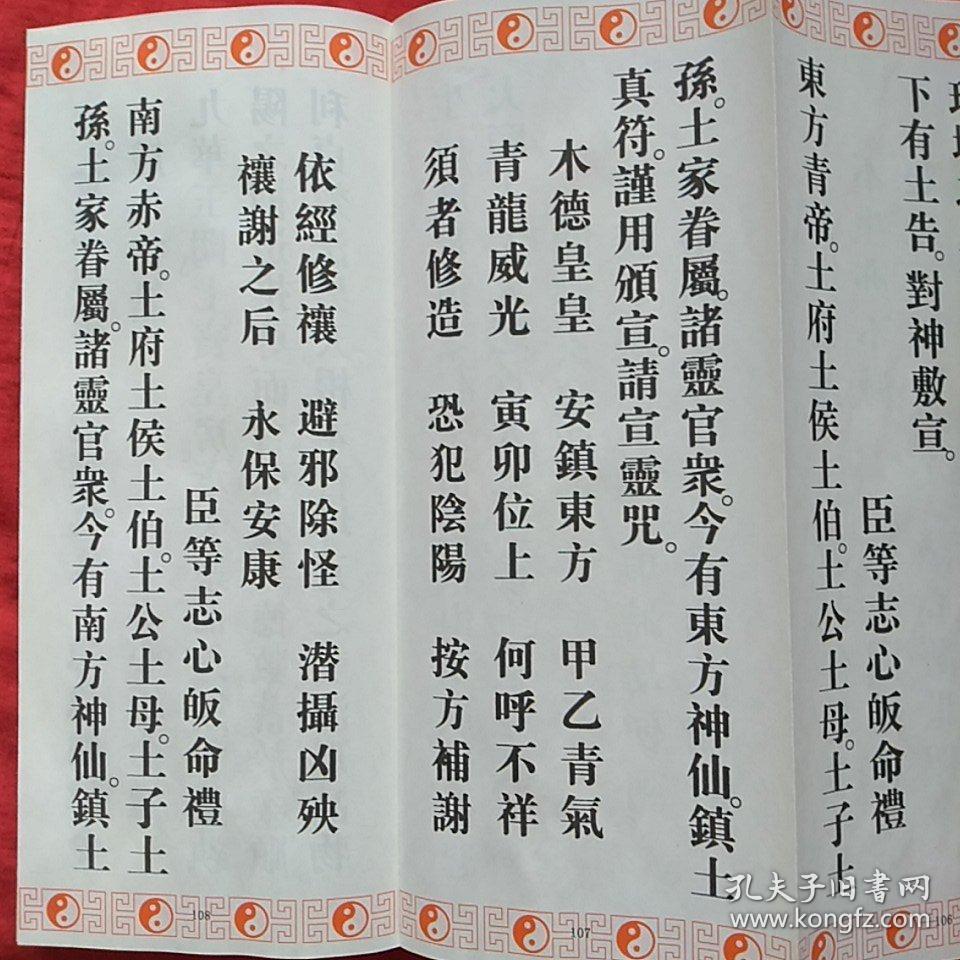 下有土告。對神敷宣。
臣等志心皈命禮
東方青帝。土府土侯土伯。土公土母。土子土
孫。土家眷屬。諸靈官衆。今有東方神仙。鎮土
真符。謹用頒宣。請宣靈咒。
木德皇皇 安鎮東方 甲乙青氣
青龍威光 寅卯位上 何呼不祥
須者修造 恐犯陰陽 按方補謝
依經修禳 避邪除怪 潜攝凶殃
禳謝之后 永保安康
臣等志心皈命禮
南方赤帝。土府土侯土伯。土公土母。土子土
孫。土家眷屬。諸靈官衆。今有南方神仙。鎮土
108
107
106
孔夫子旧书网
www.kongfz.com